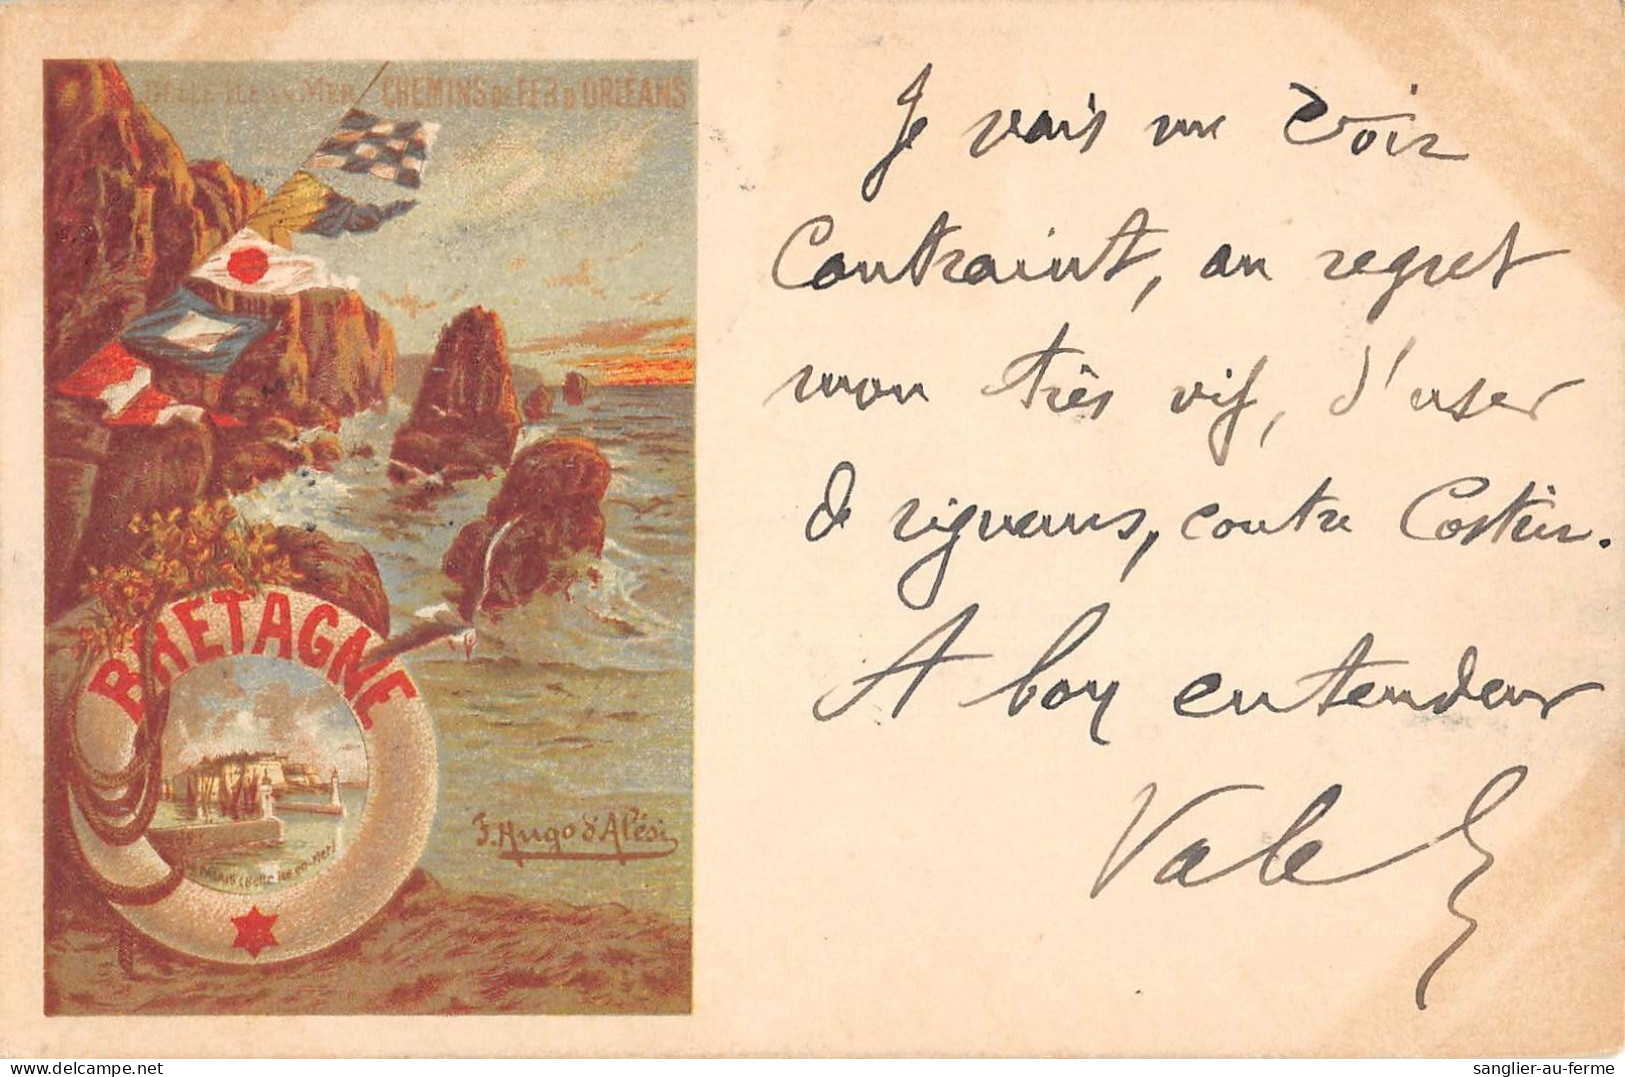 BELLE ILE EN MER CHEMINS DE FER D'ORLEANS
BRETAGNE
PALAIS (Belle ile en mer)
F. Hugo d'Alési
Je vais me voir
contraint, au regret
mon très vif, d'user
de rigueurs, contre
A bon entendeur
Vale
sanglier-au-ferme